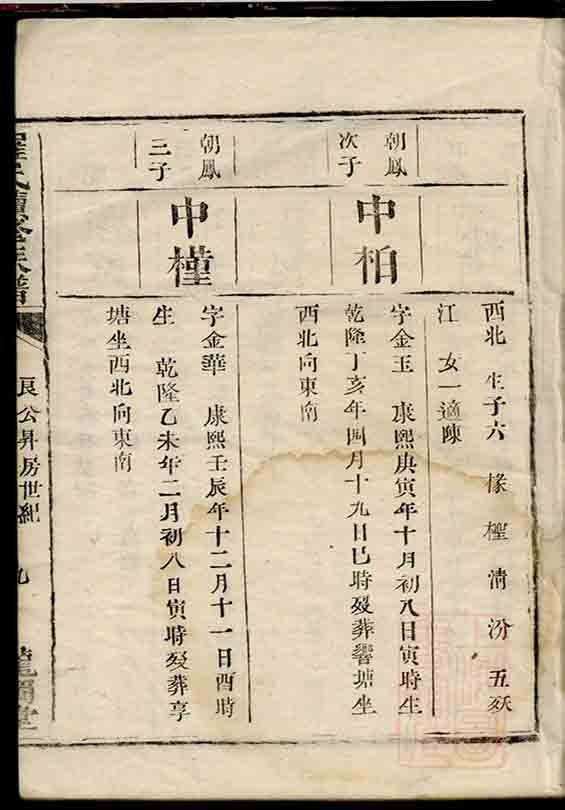 西北 生子六 椽 檉 清 汾 五 殀
江 女一適陳
朝鳳
次子
中栢
字金玉 康熙庚寅年十月初八日寅時生
乾隆丁亥年四月十九日巳時殁葬響塘坐
西北向東南
朝鳳
三子
中槿
字金華 康熙壬辰年十二月十一日酉時
生 乾隆乙未年二月初八日寅時殁葬享
塘坐西北向東南
氏續修族譜
良公昇房世紀
九